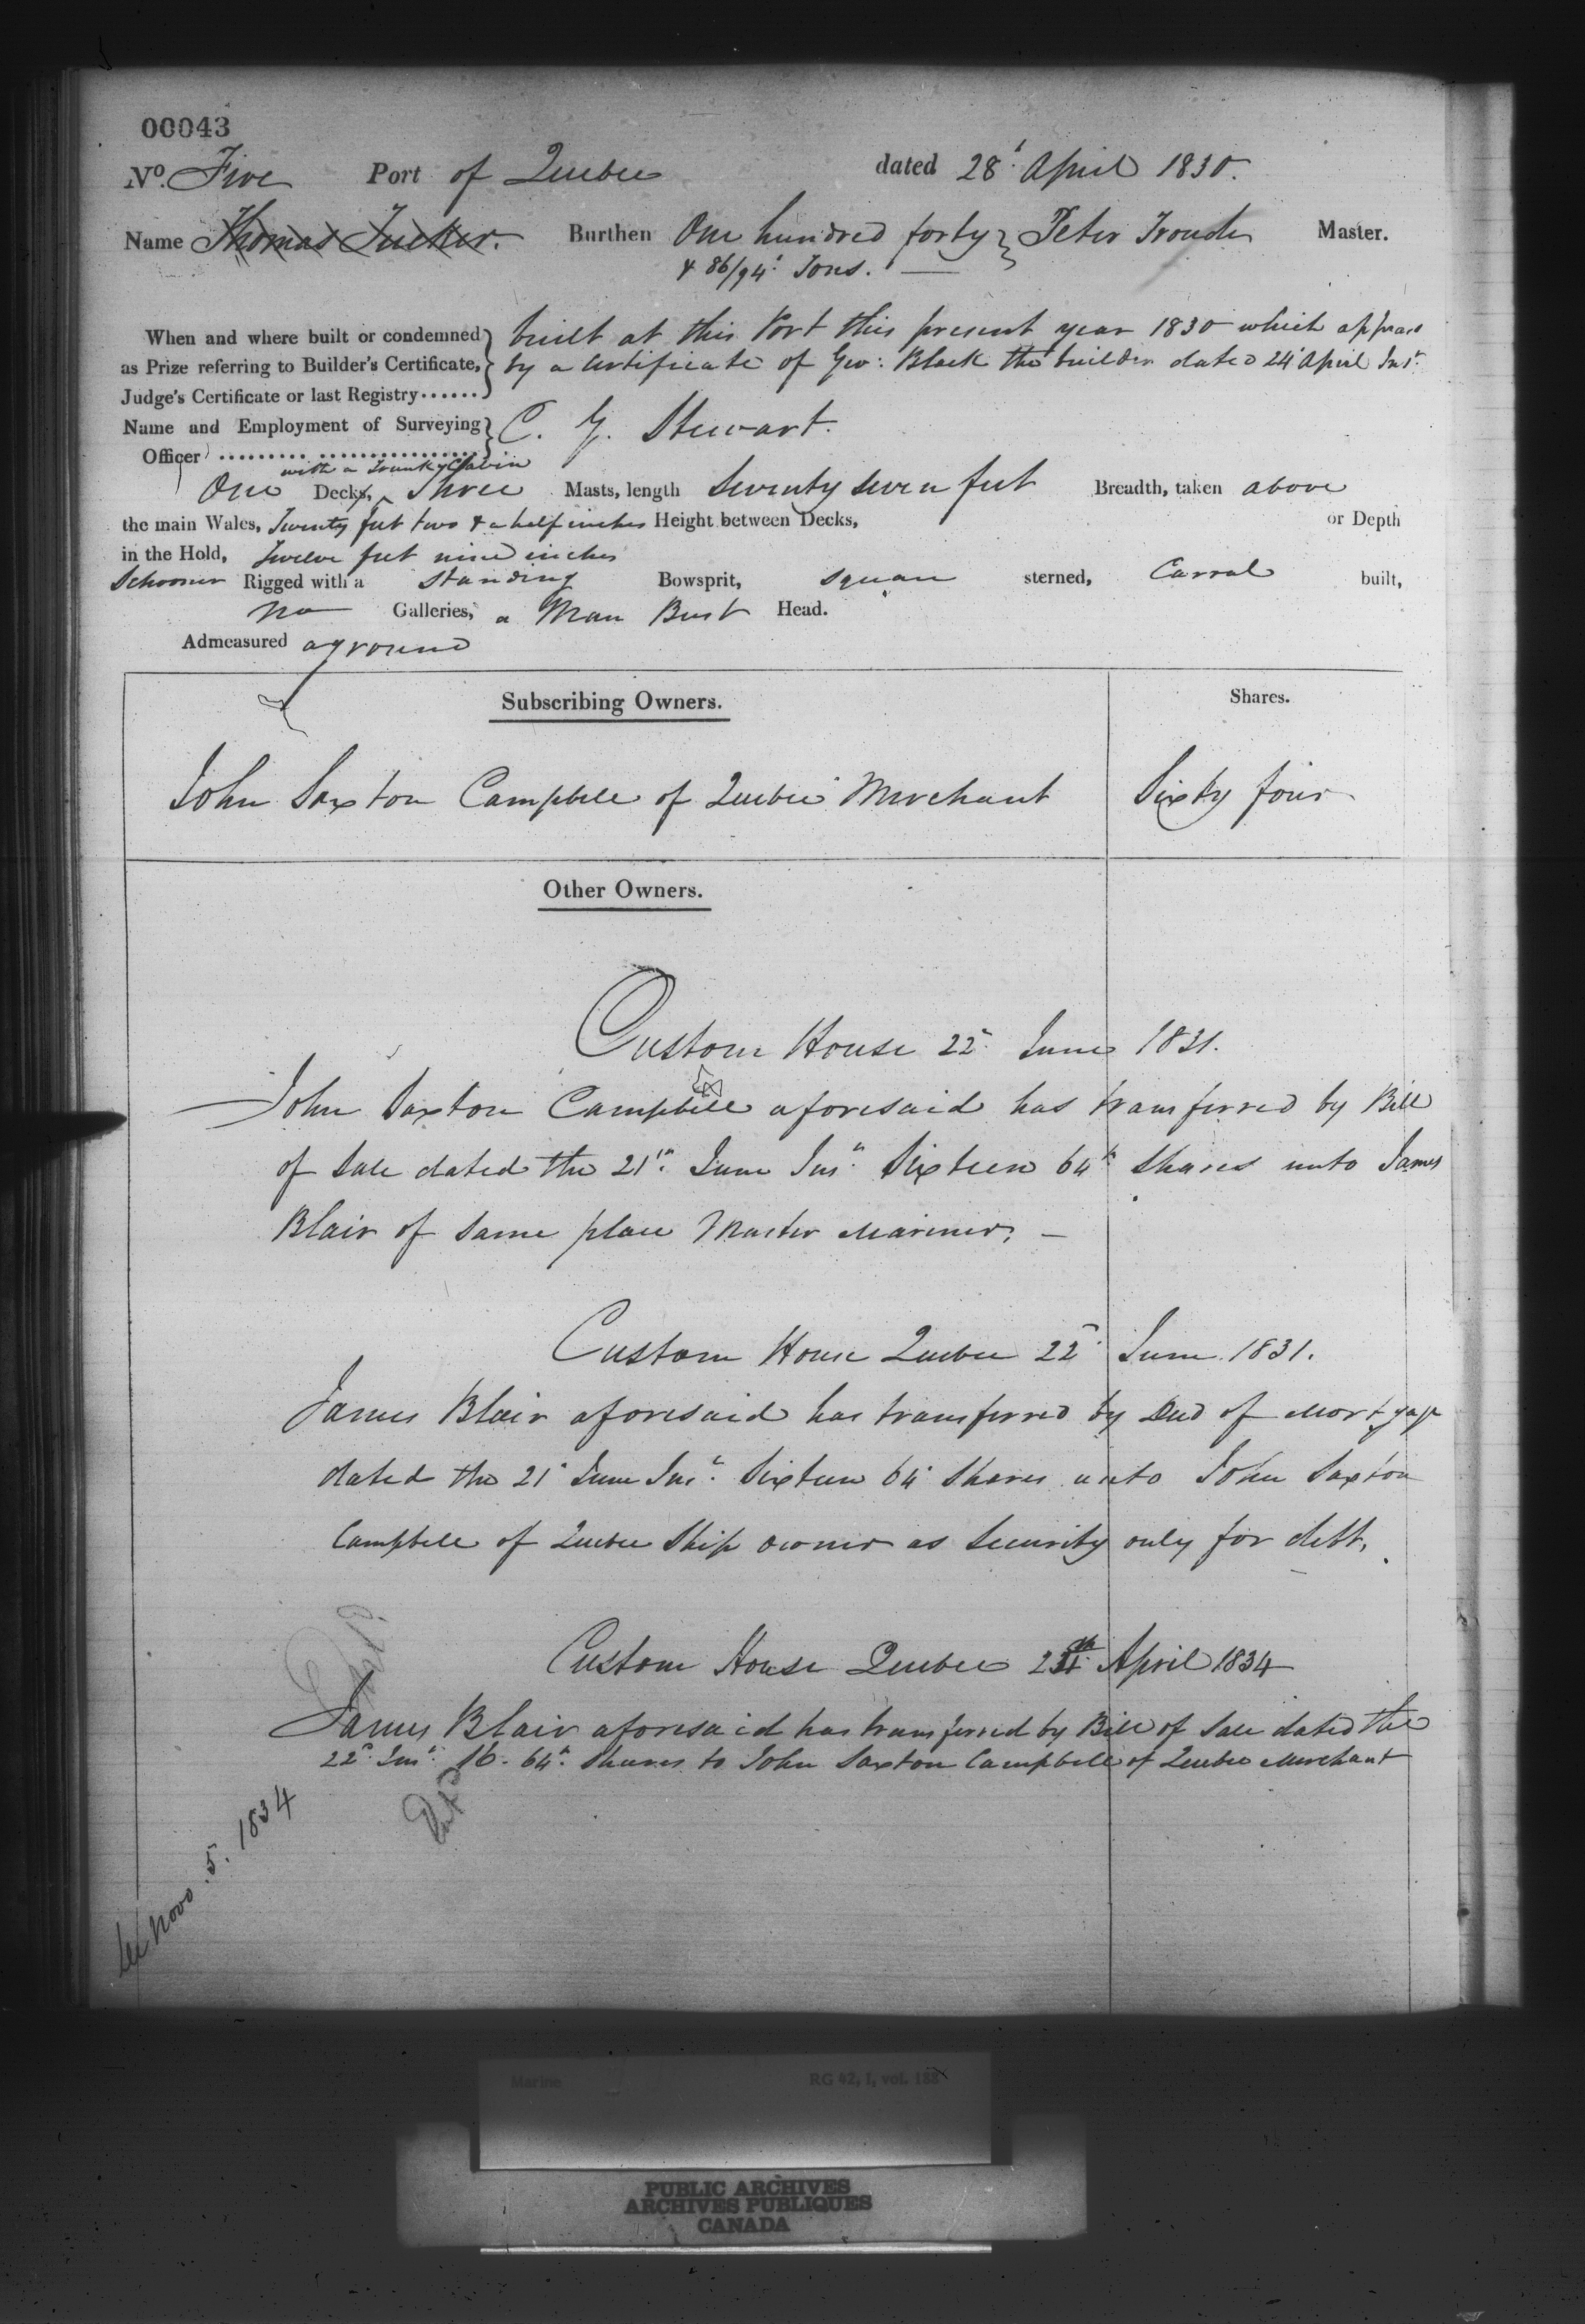 00043
No. Five Port of Quebec dated 28th April 1830.
Name Thomas Tucker. Burthen One hundred forty } Peter Master.
& 86/94th Tons. —
When and where built or condemned } built at this Port this present year 1830 which appears
as Prize referring to Builder's Certificate, } by a Certificate of Geo: Black the builder dated 24th April Inst.
Judge's Certificate or last Registry.......
Name and Employment of Surveying } C. G. Stewart.
Officer
with a Trunk Cabin
One Decks, Three Masts, length Seventy seven feet Breadth, taken above
the main Wales, Twenty feet two & a half inches Height between Decks, or Depth
in the Hold, Twelve feet nine inches
Schooner Rigged with a standing Bowsprit, square sterned, Carval built,
no Galleries, a Man Bust Head.
Admeasured aground
Subscribing Owners. Shares.
John Saxton Campbell of Quebec Merchant Sixty four
Other Owners.
Custom House 22d June 1831.
John Saxton Campbell aforesaid has transferred by Bill
of Sale dated the 21st June Inst. Sixteen 64th Shares unto James
Blair of same place Master Mariner. —
Custom House Quebec 22d June 1831.
James Blair aforesaid has transferred by Deed of Mortgage
dated the 21st June Inst. Sixteen 64th Shares unto John Saxton
Campbell of Quebec Ship owner as Security only for debt.
Custom House Quebec April 1834
James Blair aforesaid has transferred by Bill of Sale dated the
22d Inst. 16. 64th Shares to John Saxton Campbell of Quebec Merchant
De Novo 5. 1834
Marine RG 42, I, vol. 188
PUBLIC ARCHIVES
ARCHIVES PUBLIQUES
CANADA